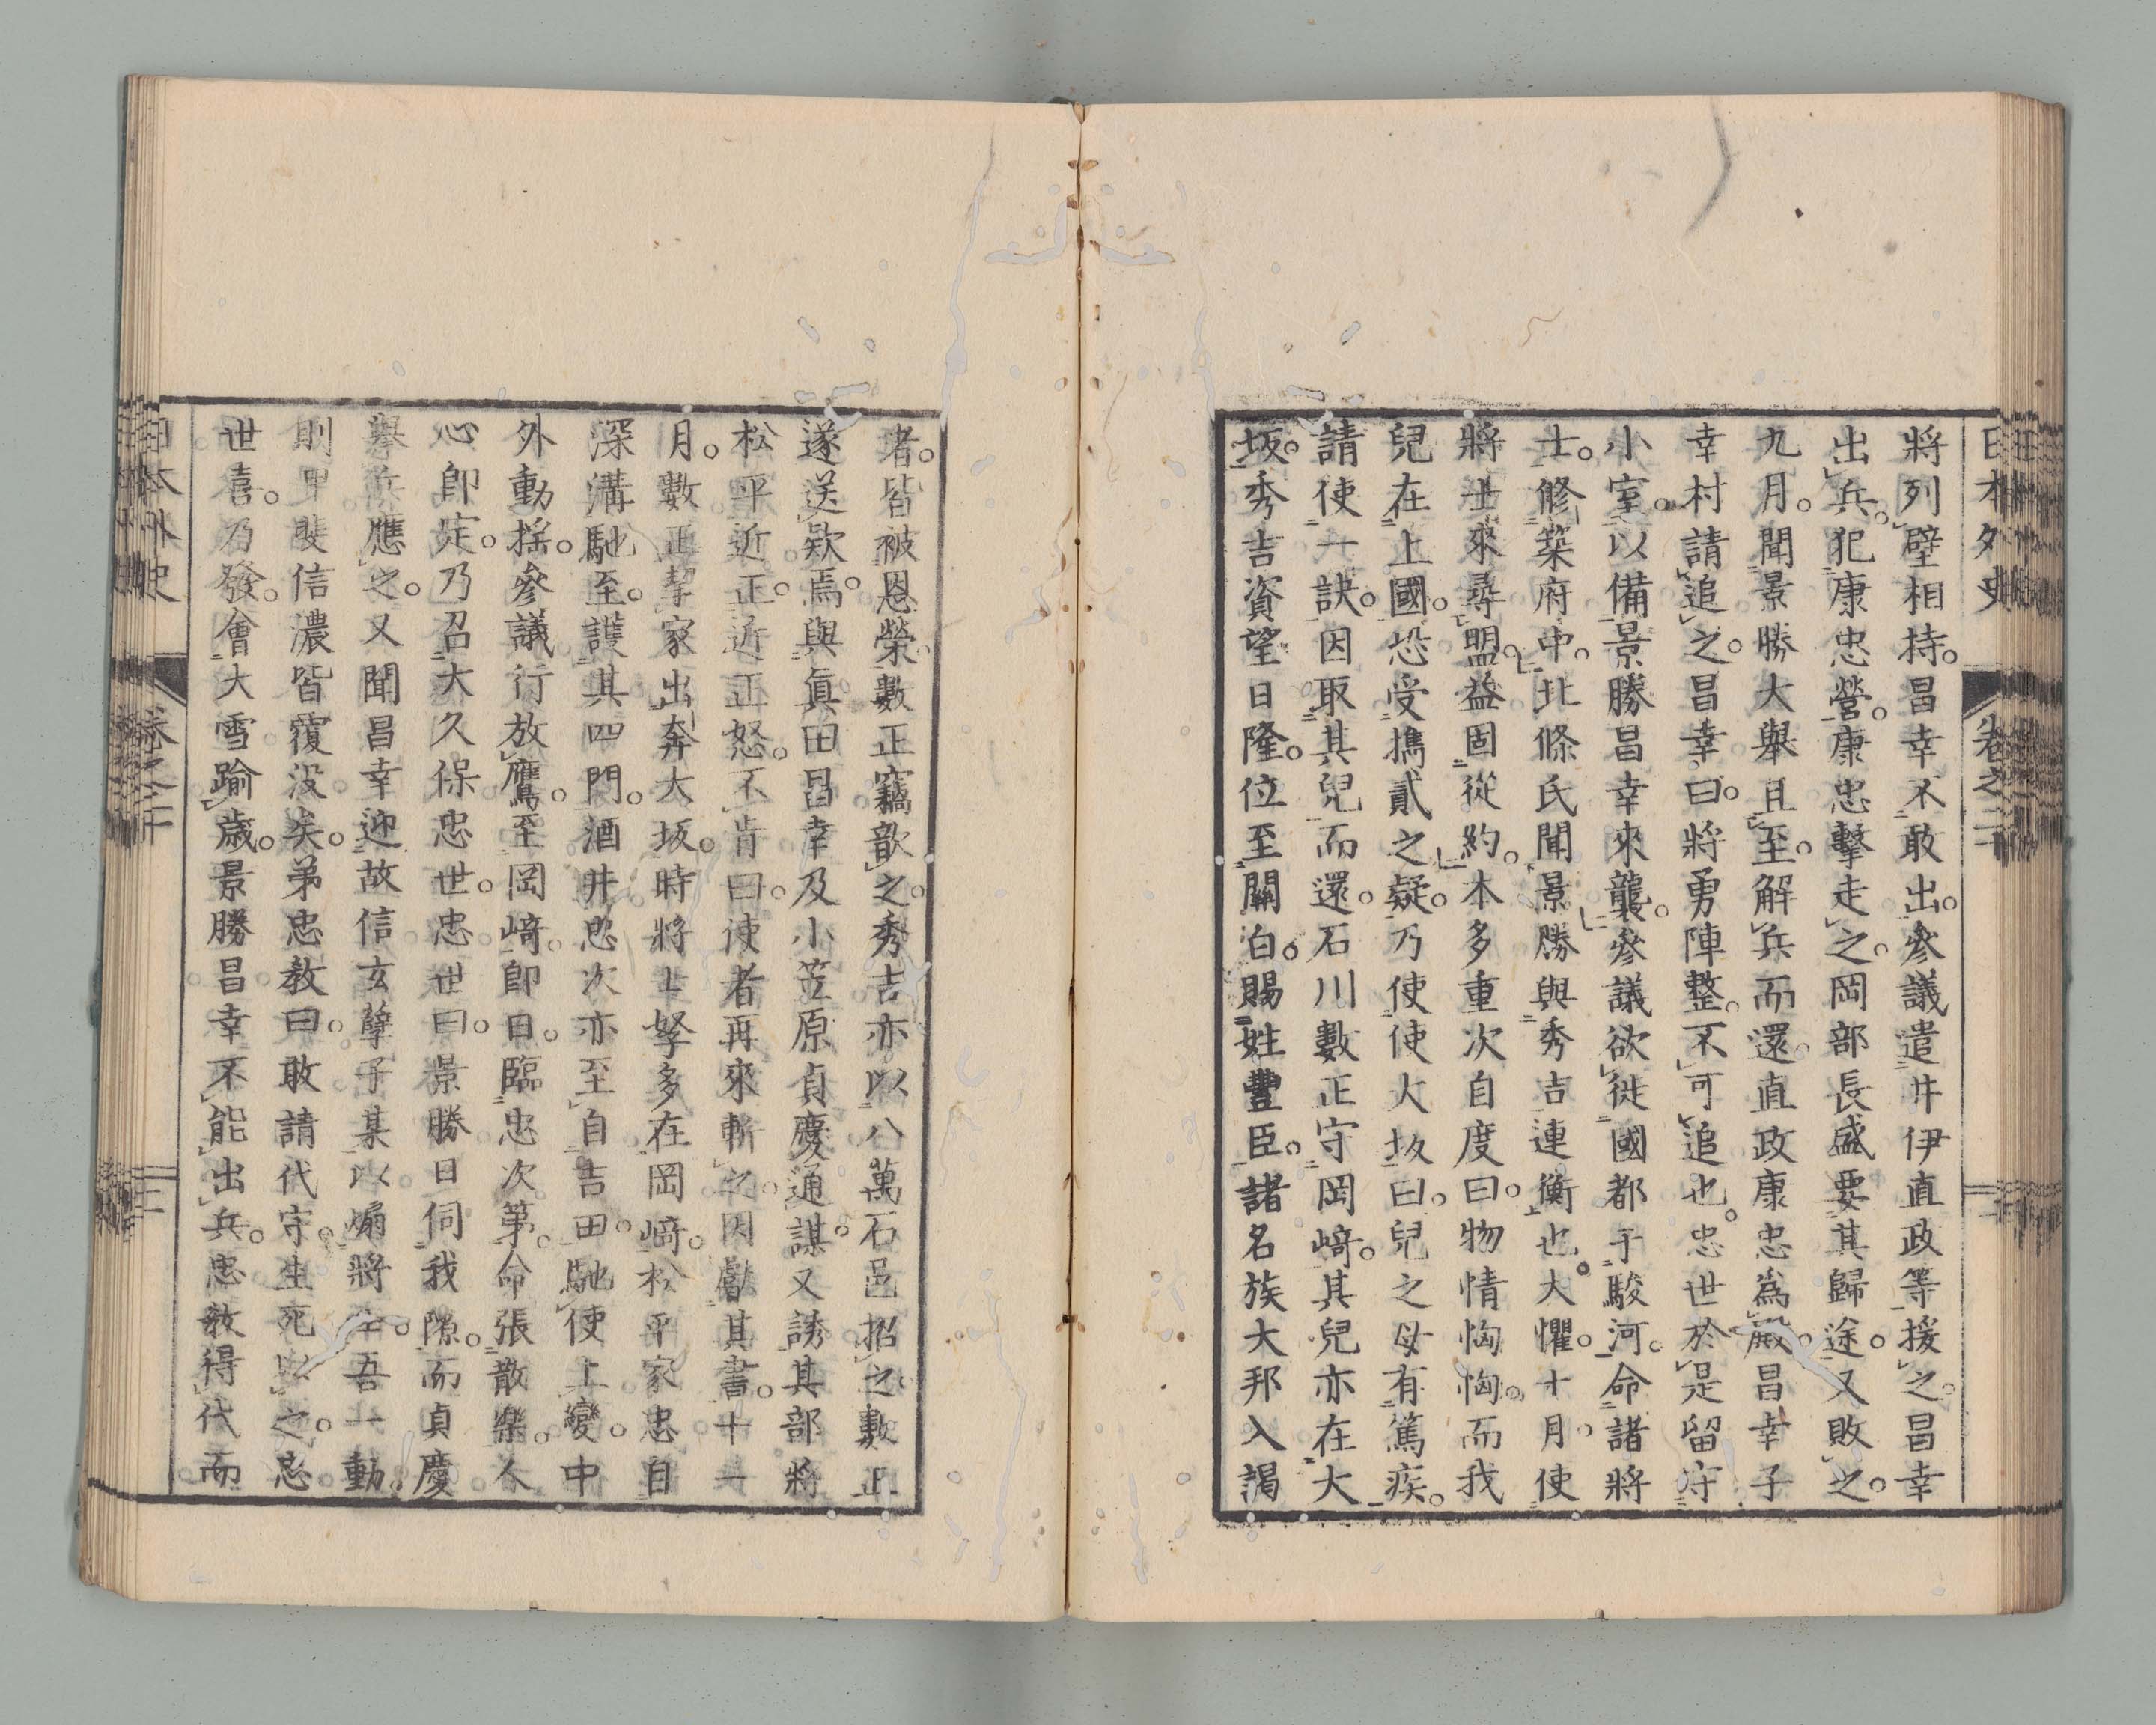 日本外史 卷之二十
將列壁相持。昌幸不敢出。參議遣井伊直政等援之。昌幸
出兵。犯康忠營。康忠擊走之。岡部長盛要其歸途。又敗之。
九月。聞景勝大舉且至。解兵而還。直政康忠為殿。昌幸子
幸村請追之。昌幸曰。將勇陣整。不可追也。忠世於是留守
小室。以備景勝昌幸來襲。參議欲徙國都于駿河。命諸將
士。修築府中。北條氏聞景勝與秀吉連衡也。大懼。十月。使
將士來尋盟。益固從約。本多重次自度曰。物情恟恟。而我
兒在上國。恐受攜貳之疑。乃使使大坂曰。兒之母有篤疾。
請使一訣。因取其兒而還。石川數正守岡﨑。其兒亦在大
坂。秀吉資望日隆。位至關白。賜姓豐臣。諸名族大邦入謁
者。皆被恩榮。數正竊歆之。秀吉亦以八萬石邑招之。數正
遂送欵焉。與眞田昌幸及小笠原貞慶通謀。又誘其部將
松平近正。近正怒。不肯曰。使者再來斬之。因獻其書。十一
月。數正挈家出奔大坂。時將士孥多在岡﨑。松平家忠自
深溝馳至。護其四門。酒井忠次亦至自吉田。馳使上變。中
外動搖。參議行放鷹。至岡﨑。卽日。臨忠次第。命張散樂。人
心卽定。乃召大久保忠世。忠世曰。景勝日伺我隙。而貞慶
舉兵應之。又聞昌幸迎故信玄孽子某。以煽將士。吾一動。
則甲斐信濃皆覆没矣。弟忠敎曰。敢請代守。生死以之。忠
世喜。乃發。會大雪踰歲。景勝昌幸不能出兵。忠敎得代而
日本外史 卷之二十 三